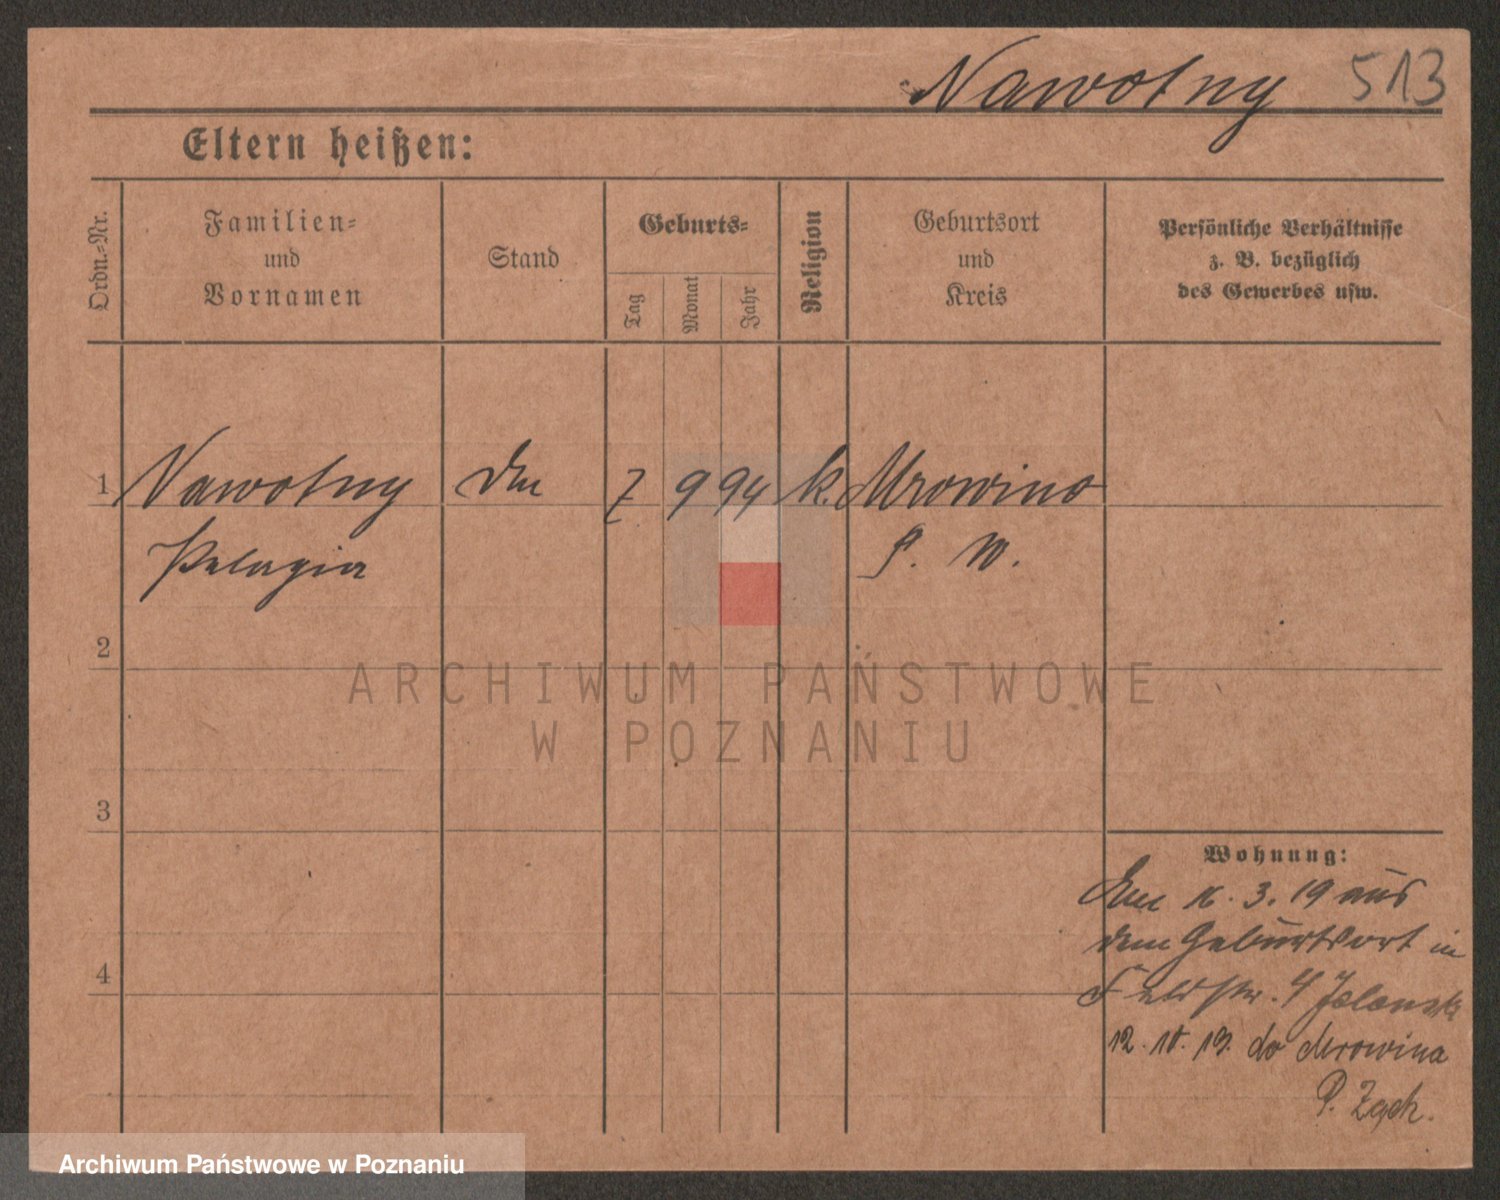 Nawotny 513
Eltern heißen:
Ordn.-Nr.
Familien-
und
Vornamen
Stand
Geburts-
Tag
Monat
Jahr
Religion
Geburtsort
und
Kreis
Persönliche Verhältnisse
z. B. bezüglich
des Gewerbes usw.
1 Nawotny 7 9 94 k. Mrowino
Pelagia P. W.
2
ARCHIWUM PAŃSTWOWE
W POZNANIU
3
Wohnung:
16. 3. 19 aus
dem Geburtsort in
4
Feldstr. 4
12. 10. 19. do Mrowina
P. Zach.
Archiwum Państwowe w Poznaniu